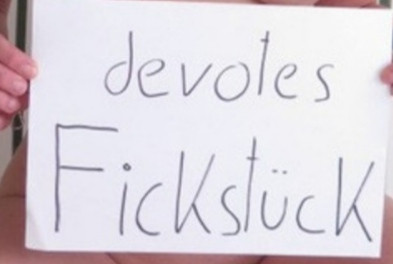 devotes
Fickstück